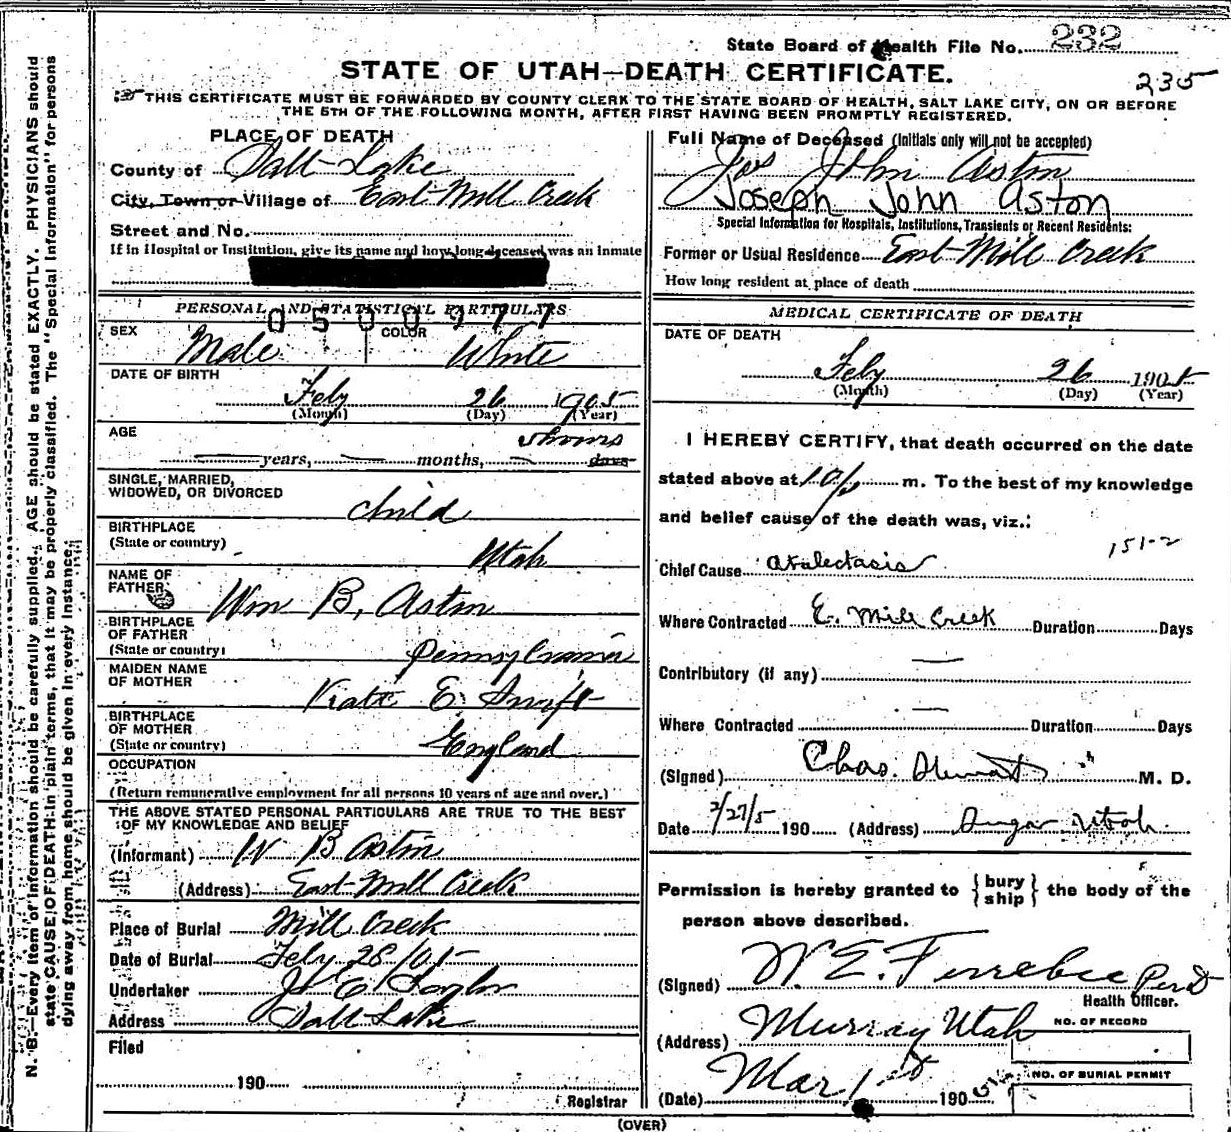 State Board of Health File No. 232
STATE OF UTAH—DEATH CERTIFICATE.
235
THIS CERTIFICATE MUST BE FORWARDED BY COUNTY CLERK TO THE STATE BOARD OF HEALTH, SALT LAKE CITY, ON OR BEFORE
THE 5TH OF THE FOLLOWING MONTH, AFTER FIRST HAVING BEEN PROMPTLY REGISTERED.
PLACE OF DEATH
County of Salt Lake
City, Town or Village of East Mill Creek
Street and No.
If in Hospital or Institution, give its name and how long deceased was an inmate
PERSONAL AND STATISTICAL PARTICULARS
0500977
SEX Male COLOR White
DATE OF BIRTH
Feby 26 1905
(Month) (Day) (Year)
AGE 5 hours
years, months, days
SINGLE, MARRIED,
WIDOWED, OR DIVORCED child
BIRTHPLACE
(State or country) Utah
NAME OF
FATHER Wm B, Aston
BIRTHPLACE
OF FATHER
(State or country) Pennsylvania
MAIDEN NAME
OF MOTHER Kate E. Swift
BIRTHPLACE
OF MOTHER
(State or country) England
OCCUPATION
(Return remunerative employment for all persons 10 years of age and over.)
THE ABOVE STATED PERSONAL PARTICULARS ARE TRUE TO THE BEST
OF MY KNOWLEDGE AND BELIEF
(Informant) W B Aston
(Address) East Mill Creek
Place of Burial Mill Creek
Date of Burial Feby 28/05
Undertaker E Taylor
Address Salt Lake
Filed
190
Registrar
Full Name of Deceased (Initials only will not be accepted)
Jos John Aston
Joseph John Aston
Special Information for Hospitals, Institutions, Transients or Recent Residents:
Former or Usual Residence East Mill Creek
How long resident at place of death
MEDICAL CERTIFICATE OF DEATH
DATE OF DEATH
Feby 26 1905
(Month) (Day) (Year)
I HEREBY CERTIFY, that death occurred on the date
stated above at 10 p m. To the best of my knowledge
and belief cause of the death was, viz.:
151-2
Chief Cause Atalectasis
Where Contracted E. Mill Creek Duration Days
Contributory (if any) —
Where Contracted — Duration Days
(Signed) Chas. Stewart M. D.
Date 2/27/5 190 (Address) Sugar Utah
Permission is hereby granted to { bury ship } the body of the
person above described.
(Signed) W. E. Ferrebee Per D
Health Officer.
(Address) Murray Utah
NO. OF RECORD
(Date) Mar 1st 190
NO. OF BURIAL PERMIT
(OVER)
N. B.—Every item of information should be carefully supplied. AGE should be stated EXACTLY. PHYSICIANS should
state CAUSE OF DEATH in plain terms, that it may be properly classified. The "Special Information" for persons
dying away from home should be given in every instance.